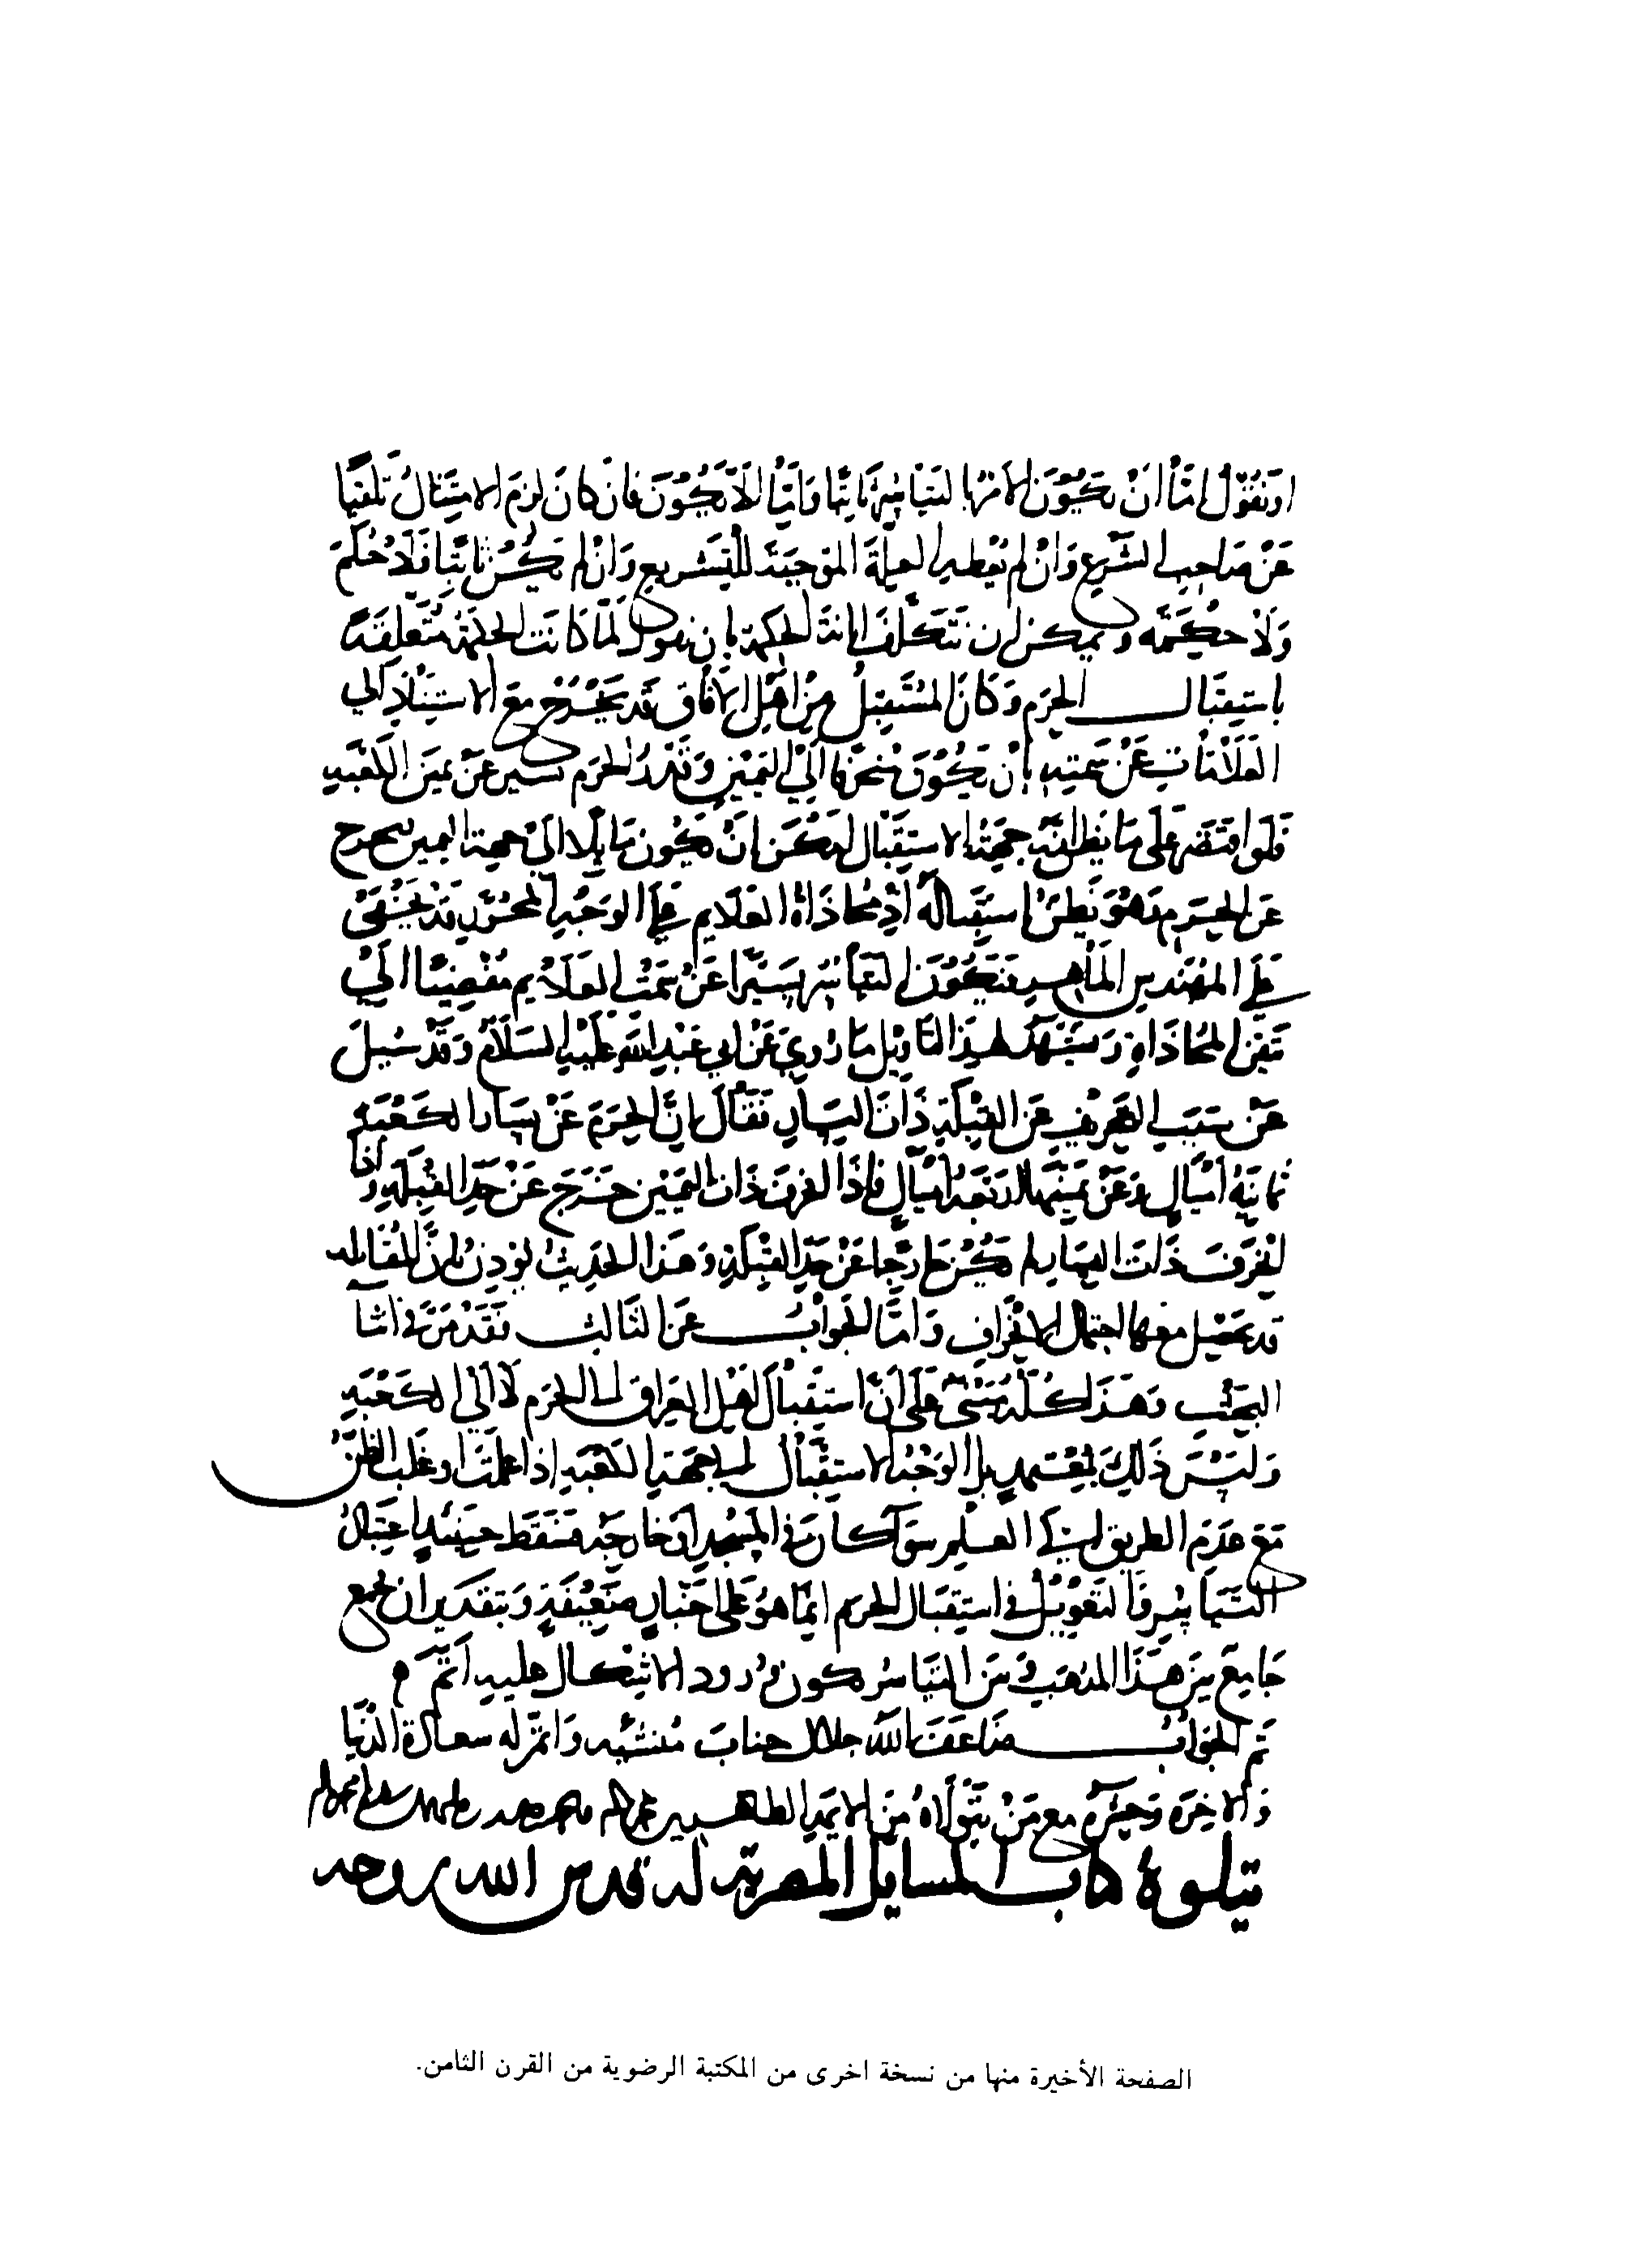 او نقول اما ان يكون الامر بها لتياسر ثابتا واما الا يكون فان كان لزم الامتثال تلقيا
عن صاحب الشرع وان لم يعط العلة الموجبة للتشريع وان لم يكن ثابتا فلا حكم
ولا حكمة ويمكن ان نتكلف ابانة الحكمة بان نقول لما كانت الحكمة متعلقة
باستقبال الحرم وكان المستقبل من اهل الافاق قد يخرج مع الاستناد الي
العلامات عن سمته بان يكون منحرفا الي اليمين وقدر الحرم يسير عن يمين الكعبه
فلو اقتصر على ما يظن انه جهة الاستقبال امكن ان يكون مايلا الى جهة اليمين فيخرج
عن الحرم وهو يظن استقباله اذ محاذاة العلايم علي الوجه المحرر قد يخفى
علي المهندس الماهر فيكون التياسر يسيرا عن سمت العلايم مفضيا الي
تيقن المحاذاة ويشهد لهذا التاويل ما روي عن ابي عبد الله عليه السلام وقد سيل
عن سبب التحريف عن القبلة ذات اليسار فقال ان الحرم عن يسار الكعبة
ثمانية اميال وعن يمينها اربعة اميال فاذا انحرف ذات اليمين خرج عن حد القبلة واذا
انحرف ذات اليسار لم يكن خارجا عن حد القبلة وهذا الحديث يوذن بان المقابله
قد يحصل معها احتمال الانحراف واما الجواب عن الثالث فقد مر في اثنآ
البحث وهذا كله مبني على ان استقبال اهل العراق الى الحرم لا الي الكعبة
وليس ذلك بمعتمد بل الوجه الاستقبال الى جهة الكعبة اذا علمت او غلب الظن
مع عدم الطريق الي العلم سوآ كان في المسجد او خارجه فسقط حينئذ اعتبار
التياسر والتعويل في استقبال الحرم انما هو على اخبار ضعيفة وبتقدير ان يجمع
جامع بين هذا المذهب وبين التياسر يكون ورود الاشكال عليه اتم
تم الجواب ضاعف الله جلال جناب منشئه وانم له سعادة الدنيا
والاخره وحشره مع من يتولاه من الايمة الطاهرين
يتلوه كتاب المسايل المصرية له قدس الله روحه
الصفحة الأخيرة منها من نسخة اخرى من المكتبة الرضوية من القرن الثامن.